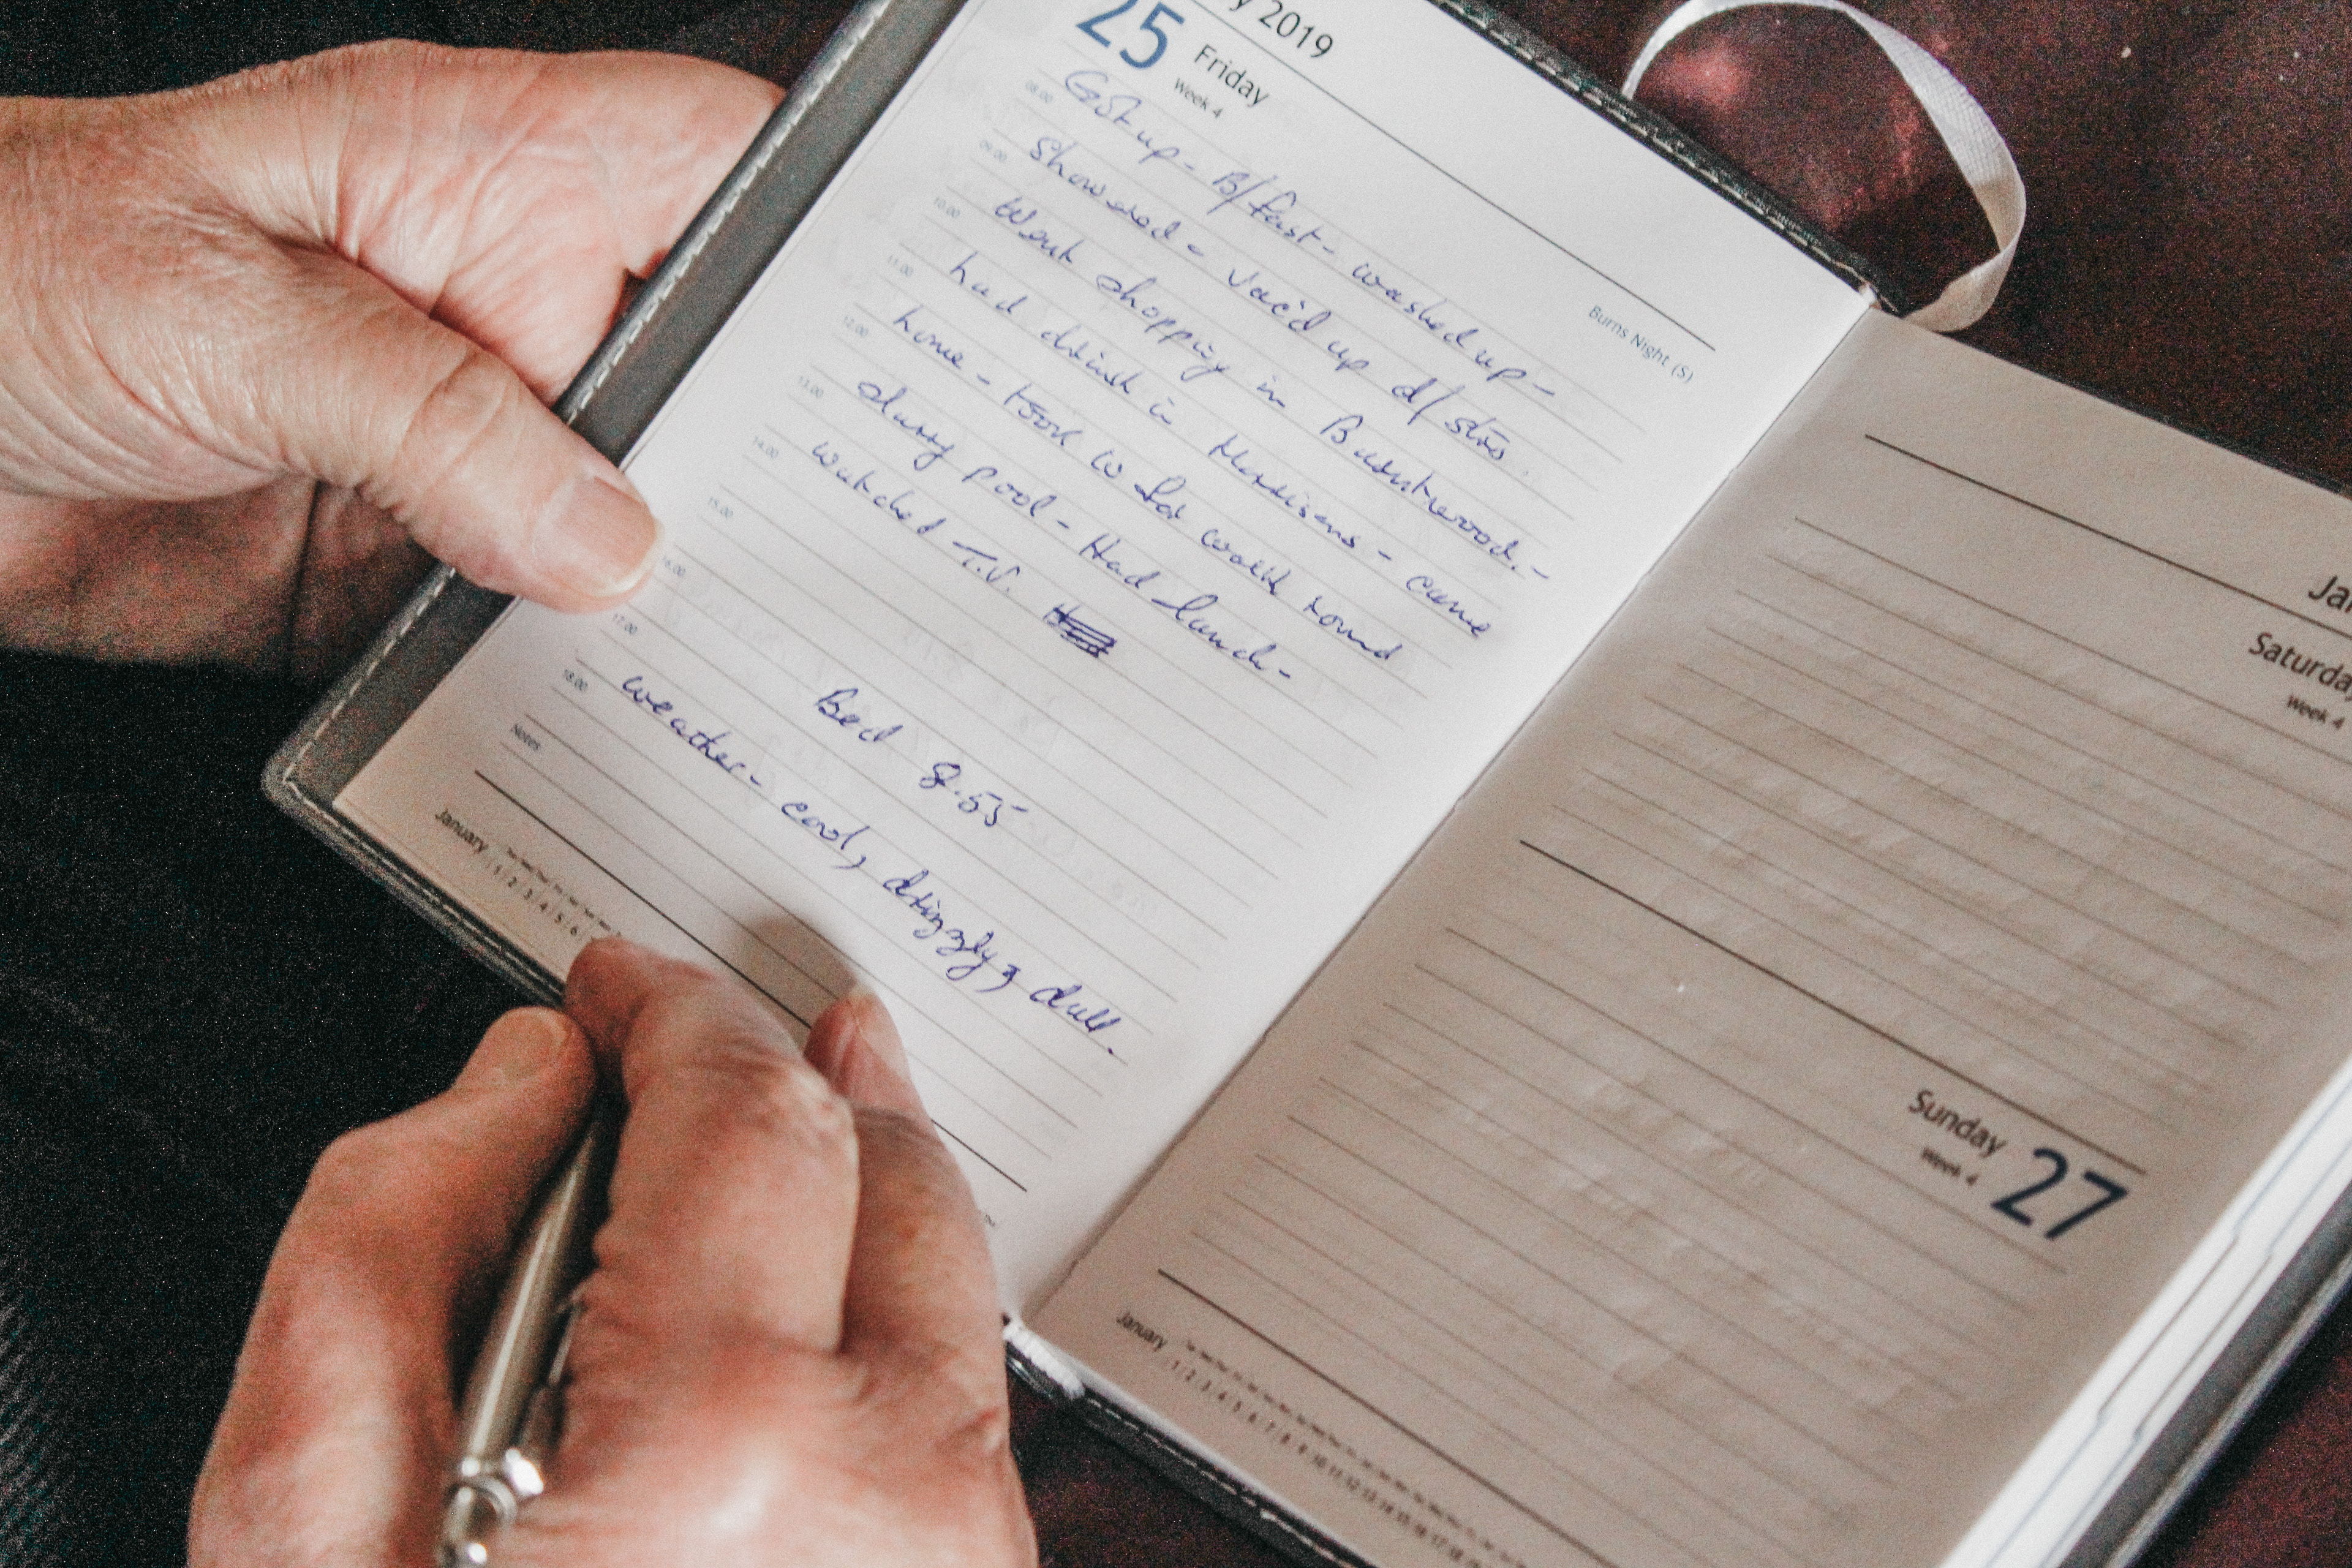 y 2019
25 Friday
Week 4
Burns Night (S)
08.00 Got up - B/fast - washed up -
09.00 Showered - Vac'd up d/strs.
10.00 Went shopping in Basntwood. -
11.00 had drink in Morrisons - came
12.00 home - took w for walk round
13.00 slurry pool - Had lunch -
14.00 watched T.V.
15.00
16.00
17.00 Bed 8.55
18.00 weather - cool, drizzly, dull.
Notes
January
1 2 3 4 5 6
Ja
Saturda
Week 4
Sunday 27
Week 4
January
1 2 3 4 5 6 7 8 9 10 11 12 13 14 15 16 17 18